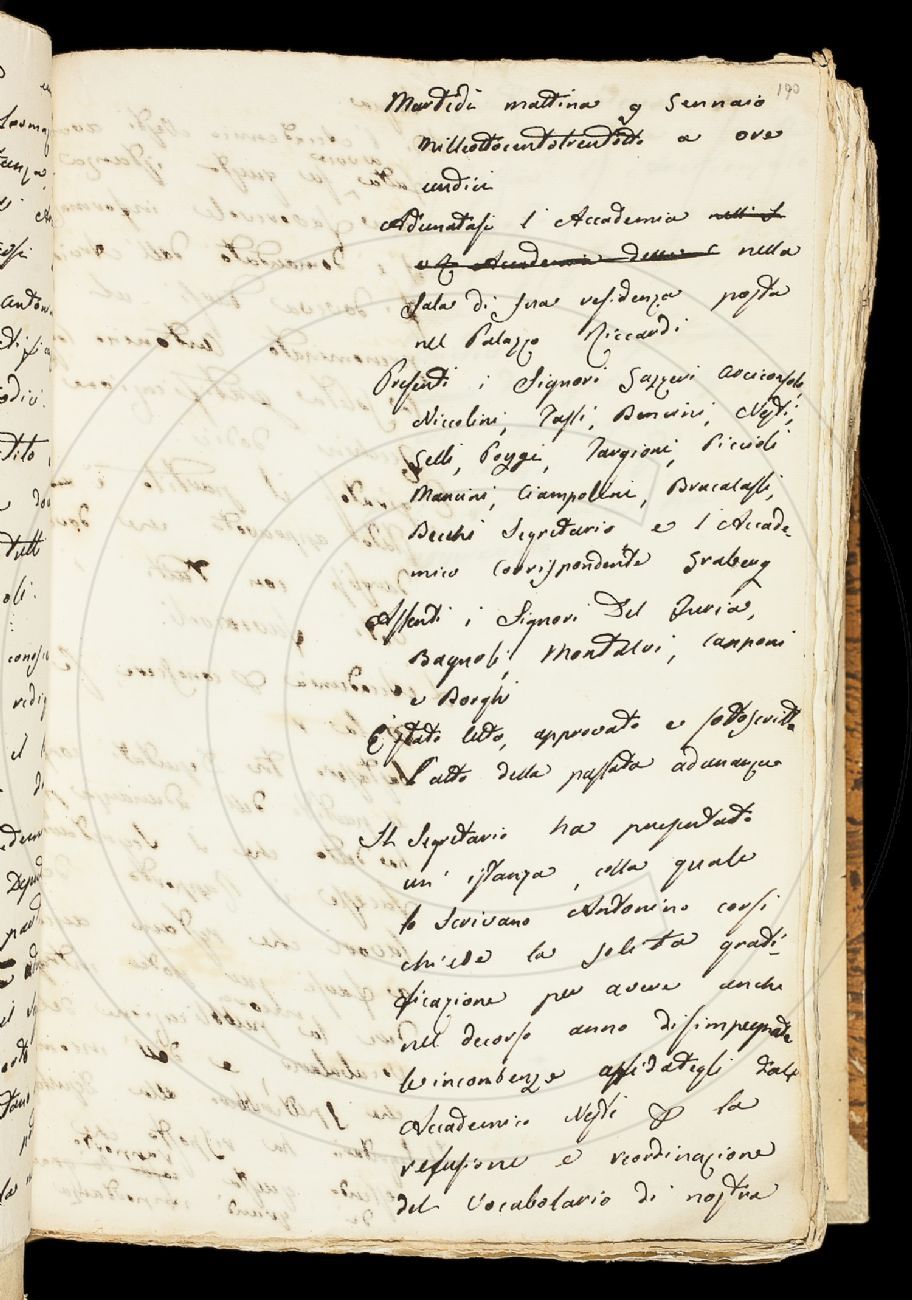 190
Martedì mattina 9 Gennaio
Milleottocentotrentotto a ore
undici
Adunatasi l'Accademia nella
sala di sua residenza posta
nel Palazzo Riccardi
Presenti i Signori Gazzeri Arciconsolo,
Niccolini, Tassi, Bencini, Nesti,
Gelli, Poggi, Targioni, Piccioli
Mancini, Ciampolini, Brucalassi,
Becchi Segretario e l'Accade-
mico Corrispondente Graberg
Assenti i Signori Del Furia,
Bagnoli, Montalvi, Capponi
e Borghi
È stato letto, approvato e sottoscritto
l'atto della passata adunanza
Il Segretario ha presentato
un'istanza, colla quale
lo Scrivano Antonino Corsi
chiede la solita grati-
ficazione per avere anche
nel decorso anno disimpegnate
le incombenze affidategli dall'
Accademico Nesti per la
refusione e reordinazione
del Vocabolario di nostra